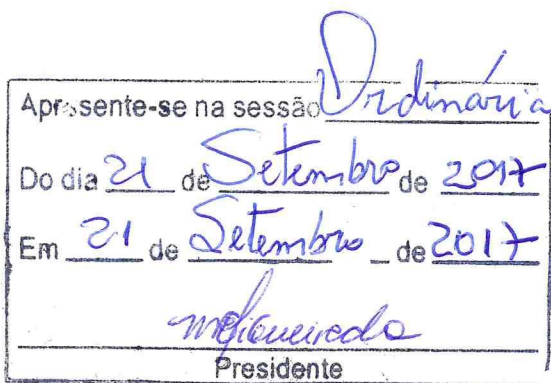 Apresente-se na sessão Ordinária
Do dia 21 de Setembro de 2017
Em 21 de Setembro de 2017
Presidente